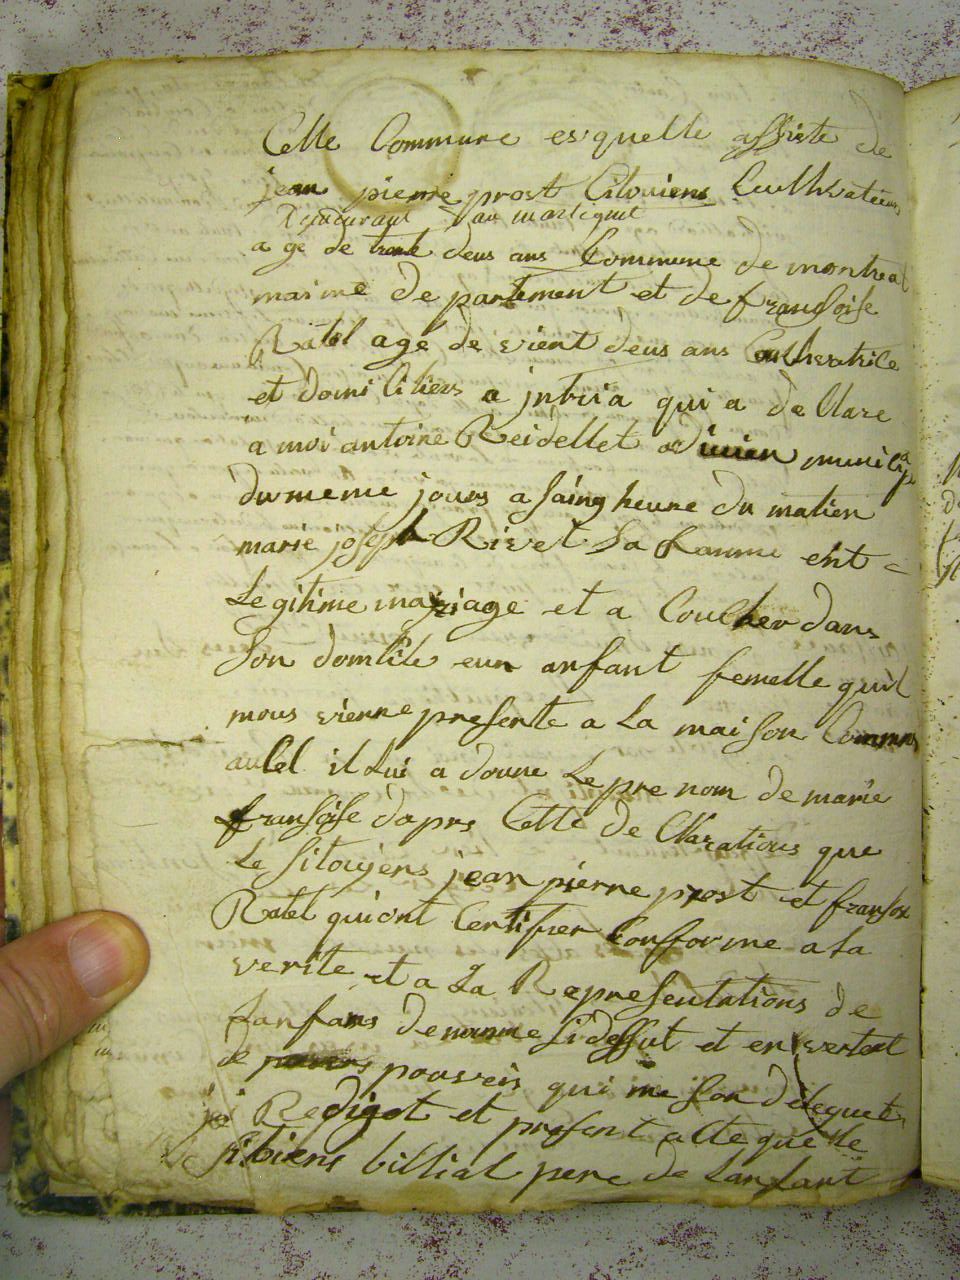 Cette Commune es quelle assiste de
jean pierre prost Citoviens Cullivateurs
au martegnut
a ge de trante deus ans Commune de montreal
maime de partement et de franssoise
Ratel age de vient deus ans Cullivatrice
et domi Ciliers a intria qui a de Clare
a moi antoine Reidellet municip
du meme jours a saing heure du matien
marie joseph Rivet Sa famme ent
Legitime mariage et a Coucher dans
Son domCile eun anfant femelle quil
mous vienne presente a La maison Commun
aulel il Lui a donne Le pre nom de marie
fransoise dapres Cette de Clarations que
Le Sitoyens jean pierre prost et fransoi
Ratel qui ont Certifier Confforme a La
verite et a La Representations de
Lanfans denomme Sidessut et en vertut
de pouveis qui me Son deleguet
jei Rediget et present acte que le
Sitoiens billiat pere de Lanfant